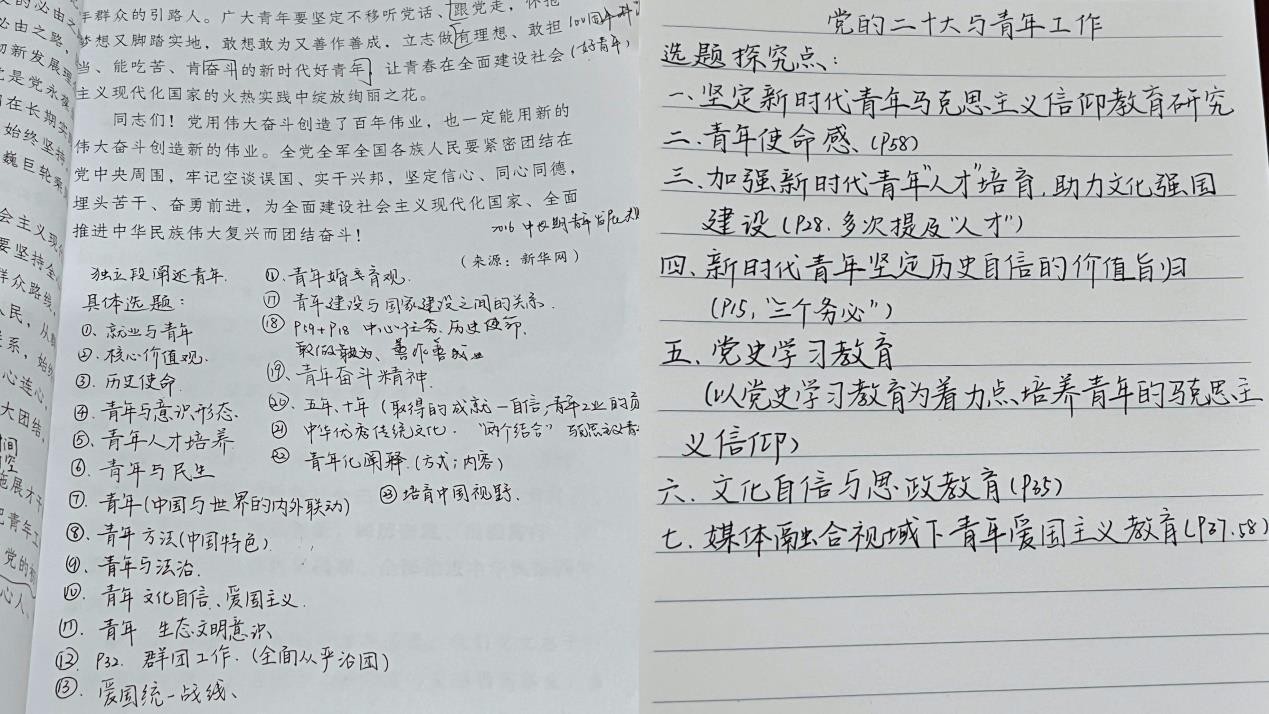 年群众的引路人。广大青年要坚定不移听党话、跟党走，怀抱
梦想又脚踏实地，敢想敢为又善作善成，立志做有理想、敢担
当、能吃苦、肯奋斗的新时代好青年，让青春在全面建设社会
(好青年)
主义现代化国家的火热实践中绽放绚丽之花。
同志们！党用伟大奋斗创造了百年伟业，也一定能用新的
伟大奋斗创造新的伟业。全党全军全国各族人民要紧密团结在
党中央周围，牢记空谈误国、实干兴邦，坚定信心、同心同德，
埋头苦干、奋勇前进，为全面建设社会主义现代化国家、全面
推进中华民族伟大复兴而团结奋斗！
2016 中长期青年发展
（来源：新华网）
独立段阐述青年.
具体选题：
①. 就业与青年
②. 核心价值观.
③. 历史使命.
④. 青年与意识形态.
⑤. 青年人才培养
⑥. 青年与民生
⑦. 青年(中国与世界的内外联动)
⑧. 青年方法(中国特色).
⑨. 青年与法治.
⑩. 青年文化自信、爱国主义.
⑪. 青年 生态文明意识、
⑫. P32. 群团工作. (全面从严治团)
⑬. 爱国统一战线、
青年婚恋育观.
⑰ 青年建设与国家建设之间的关系.
⑱ P59+P18 中心任务.历史使命.
敢做敢为、善作善成
⑲、青年奋斗精神.
⑳. 五年、十年 (取得的成就—自信；青年工业的贡
㉑ 中华优秀传统文化. "两个结合"
㉒ 青年化阐释.(方式；内容)
㉓培育中国视野.
党的二十大与青年工作
选题探究点：
一、坚定新时代青年马克思主义信仰教育研究
二、青年使命感、(P58)
三、加强新时代青年"人才"培育，助力文化强国
建设(P28.多次提及"人才")
四、新时代青年坚定历史自信的价值旨归
(P15,"三个务必")
五、党史学习教育
(以党史学习教育为着力点，培养青年的马克思主
义信仰)
六、文化自信与思政教育(P35)
七、媒体融合视域下青年爱国主义教育(P37.58)